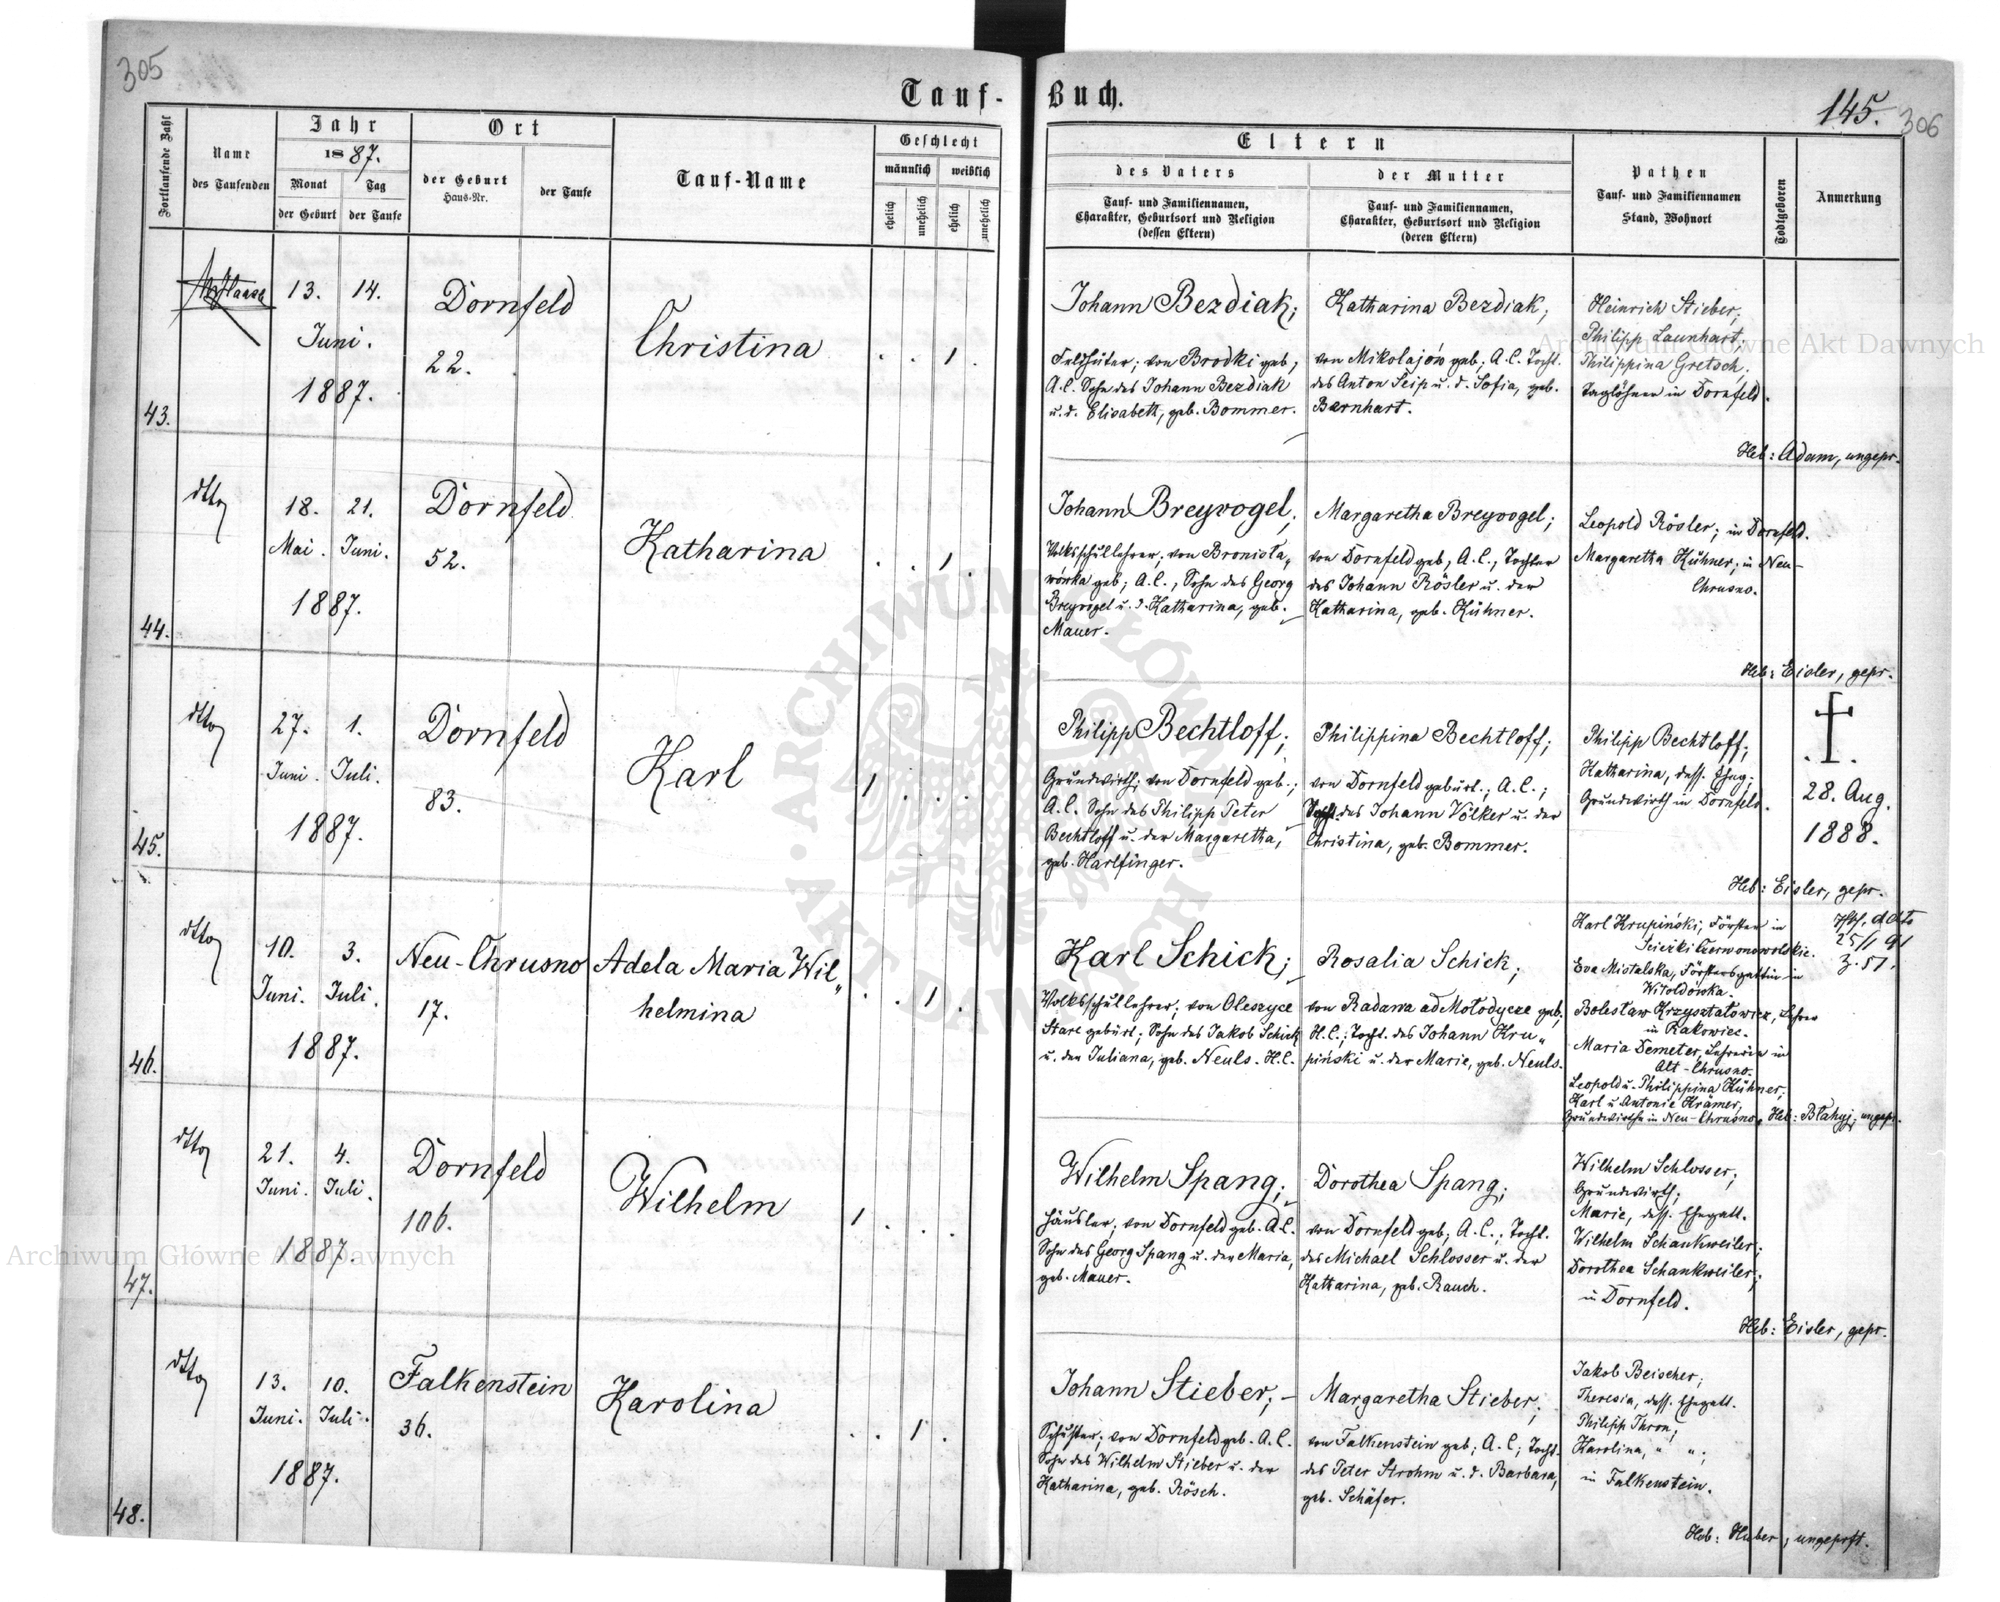 305
Tauf-Buch.
145.
306
Fortlaufende Zahl
Name
des Taufenden
Jahr
1887.
Monat
der Geburt
Tag
der Taufe
Ort
der Geburt
Haus-Nr.
der Taufe
Tauf-Name
Geschlecht
männlich
weiblich
ehelich
unehelich
ehelich
unehelich
Eltern
des Vaters
Tauf- und Familiennamen,
Charakter, Geburtsort und Religion
(dessen Eltern)
der Mutter
Tauf- und Familiennamen,
Charakter, Geburtsort und Religion
(deren Eltern)
Pathen
Tauf- und Familiennamen
Stand, Wohnort
Todtgeboren
Anmerkung
43.
13. 14.
Juni.
1887.
Dornfeld
22.
Christina
1
Johann Bezdiak;
Feldhüter; von Brodki geb;
A.C. Sohn des Johann Bezdiak
u. d. Elisabeth, geb. Bommer.
Katharina Bezdiak;
von Mikolajów geb; A.C. Tocht.
des Anton Seip u. d. Sofia, geb.
Barnhart.
Heinrich Stieber;
Philipp Launhart;
Philippina Gretsch.
Taglöhner in Dornfeld.
Heb: Adam, ungepr.
44.
dtto
18. 21.
Mai. Juni.
1887.
Dornfeld
52.
Katharina
1
Johann Breyvogel;
Volksschullehrer; von Bronisła„
wówka geb; A.C., Sohn des Georg
Breyvogel u. d. Katharina, geb.
Mauer.
Margaretha Breyvogel;
von Dornfeld geb, A.C., Tochter
des Johann Rösler u. der
Katharina, geb. Kühner.
Leopold Rösler; in Dornfeld.
Margaretha Kühner; in Neu-
Chrusno.
Heb: Eisler, gepr.
45.
dtto
27. 1.
Juni. Juli.
1887.
Dornfeld
83.
Karl
1
Philipp Bechtloff;
Grundwirth; von Dornfeld geb.;
A.C. Sohn des Philipp Peter
Bechtloff u. der Margaretha,
geb. Harlfinger.
Philippina Bechtloff;
von Dornfeld gebürt.; A.C.;
Tocht. des Johann Völker u. der
Christina, geb. Bommer.
Philipp Bechtloff;
Katharina, dess. Eheg;
Grundwirth in Dornfeld.
†
28. Aug.
1888.
Heb: Eisler, gepr.
46.
dtto
10. 3.
Juni. Juli.
1887.
Neu-Chrusno
17.
Adela Maria Wil„
helmina
1
Karl Schick;
Volksschullehrer; von Oleszyce
Stare gebürt; Sohn des Jakob Schick
u. der Juliana, geb. Neuls. H.C.
Rosalia Schick;
von Radawa ad Mołodycze geb,
H.C.; Tocht. des Johann Kru„
piński u. der Marie, geb. Neuls.
Karl Krupiński; Förster in
Eva Mistalska, Förstersgattin in
Witoldówka.
Bolesław Krzyształowicz, Lehrer
in Rakowiec.
Maria Demeter, Lehrerin in
Alt-Chrusno.
Leopold u. Philippina Kühner,
Karl u. Antonie Krämer,
Grundwirthe in Neu-Chrusno.
25/1 91
Z. 51.
Heb: Błahyj; ungepr.
47.
dtto
21. 4.
Juni. Juli.
1887.
Dornfeld
106.
Wilhelm
1
Wilhelm Spang;
Häusler; von Dornfeld geb. A.C.
Sohn des Georg Spang u. der Maria,
geb. Mauer.
Dorothea Spang;
von Dornfeld geb; A.C.; Tocht.
des Michael Schlosser u. der
Katharina, geb. Rauch.
Wilhelm Schlosser;
Grundwirth;
Marie, dess. Ehegatt.
Wilhelm Schankweiler;
Dorothea Schankweiler;
in Dornfeld.
Heb: Eisler, gepr.
48.
dtto
13. 10.
Juni. Juli.
1887.
Falkenstein
36.
Karolina
1
Johann Stieber;
Schuster; von Dornfeld geb. A.C.
Sohn des Wilhelm Stieber u. der
Katharina, geb. Rösch.
Margaretha Stieber;
von Falkenstein geb; A.C; Tocht.
des Peter Strohm u. d. Barbara,
geb. Schäfer.
Jakob Beischer;
Theresia, dess. Ehegatt.
Philipp Thron;
Karolina, " ";
in Falkenstein.
Heb: Huber; ungeprft.
Archiwum Główne Akt Dawnych
Archiwum Główne Akt Dawnych
ARCHIWUM GŁÓWNE AKT DAWNYCH